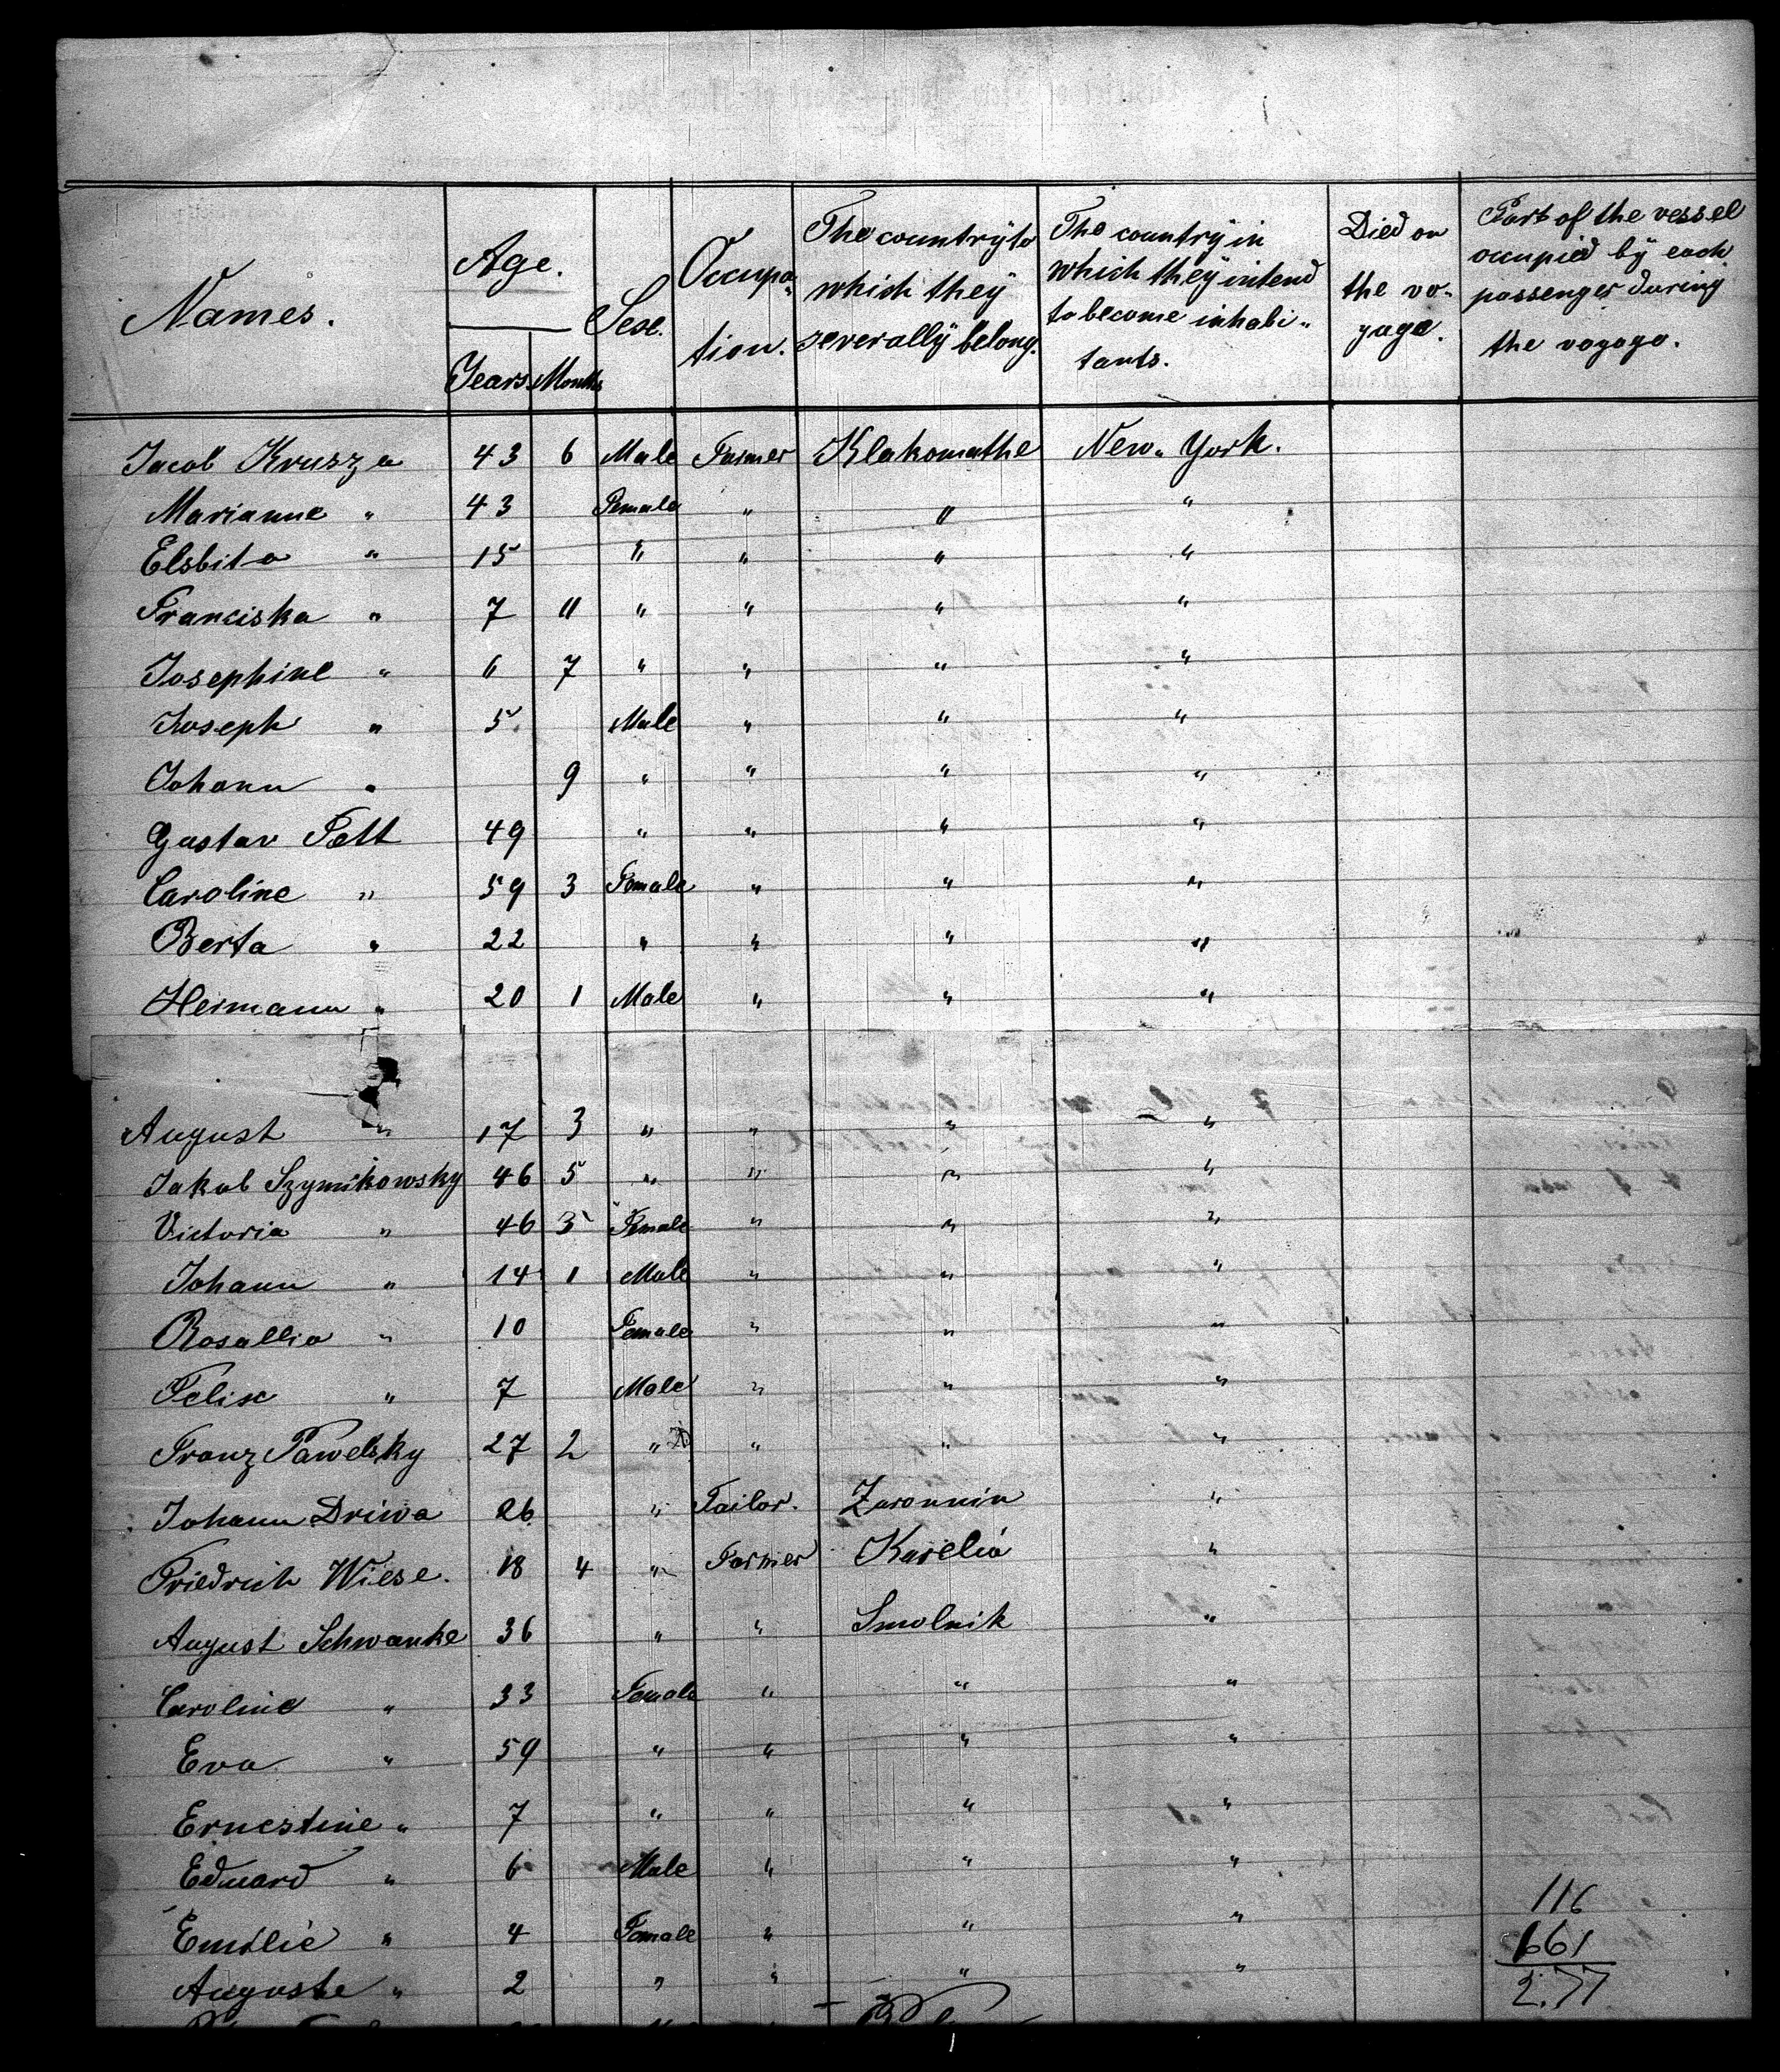 Names. Age. Years Months Sex. Occupa„tion. The country to which they severally belong. The country in which they intend to become inhabi„tants. Died on the vo„yage. Part of the vessel occupied by each passenger during the voyage.
Jacob Krusza 43 6 Male Farmer Klakomuthe New„York.
Marianne „ 43 Female „ „ „
Elsbita „ 15 „ „ „ „
Franciska „ 7 11 „ „ „ „
Josephine „ 6 7 „ „ „ „
Joseph „ 5 Male „ „ „
Johann „ 9 „ „ „ „
Gustav Fett 49 „ „ „ „
Caroline „ 59 3 Female „ „ „
Berta „ 22 „ „ „ „
Hermann „ 20 1 Male „ „ „
August „ 17 3 „ „ „ „
Jakob Szymikowsky 46 5 „ „ „ „
Victoria „ 46 3 Female „ „ „
Johann „ 14 1 Male „ „ „
Rosallia „ 10 Female „ „ „
Felix „ 7 Male „ „ „
Franz Pawelsky 27 2 „ „ „ „
Johann Driwa 26 „ Tailor. Zaronnin „
Friedrich Wiese. 18 4 „ Farmer Karelia „
August Schwanke 36 „ „ Smolnik „
Caroline „ 33 Female „ „ „
Eva „ 59 „ „ „ „
Ernestine „ 7 „ „ „ „
Eduard „ 6 Male „ „ „
Emilie „ 4 Female „ „ „
Auguste „ 2 „ „ „ „
116
661
2.77